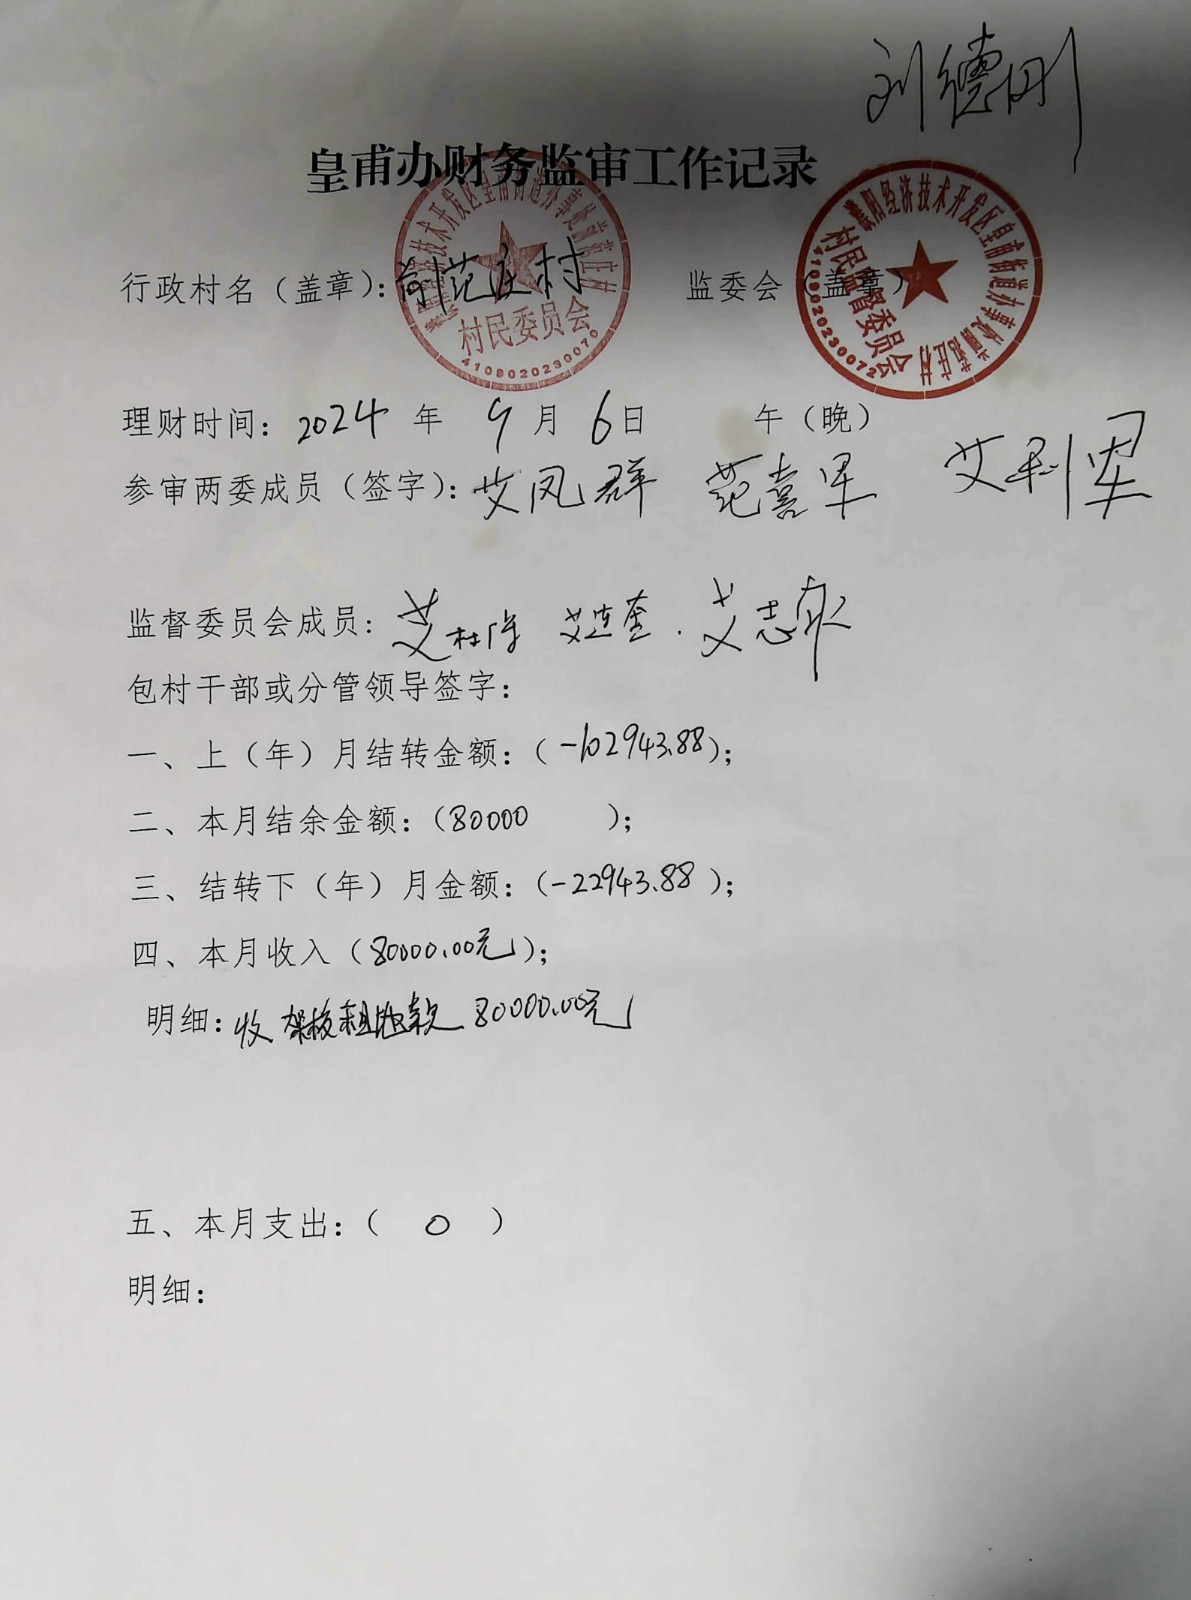 刘德刚
皇甫办财务监审工作记录
行政村名（盖章）：前范庄村 监委会（盖章）
村民委员会
4109020230070
濮阳经济技术开发区皇甫街道办事处前范庄村
村民监督委员会
4109020230072
理财时间：2024年 9月 6日 午（晚）
参审两委成员（签字）：艾凤群 范喜军 艾利军
监督委员会成员：艾 艾连奎 . 艾志
包村干部或分管领导签字：
一、上（年）月结转金额：（-102943.88）；
二、本月结余金额：（80000 ）；
三、结转下（年）月金额：（-22943.88 ）；
四、本月收入（80000.00元）；
明细：收 款 80000.00元
五、本月支出：（ 0 ）
明细：